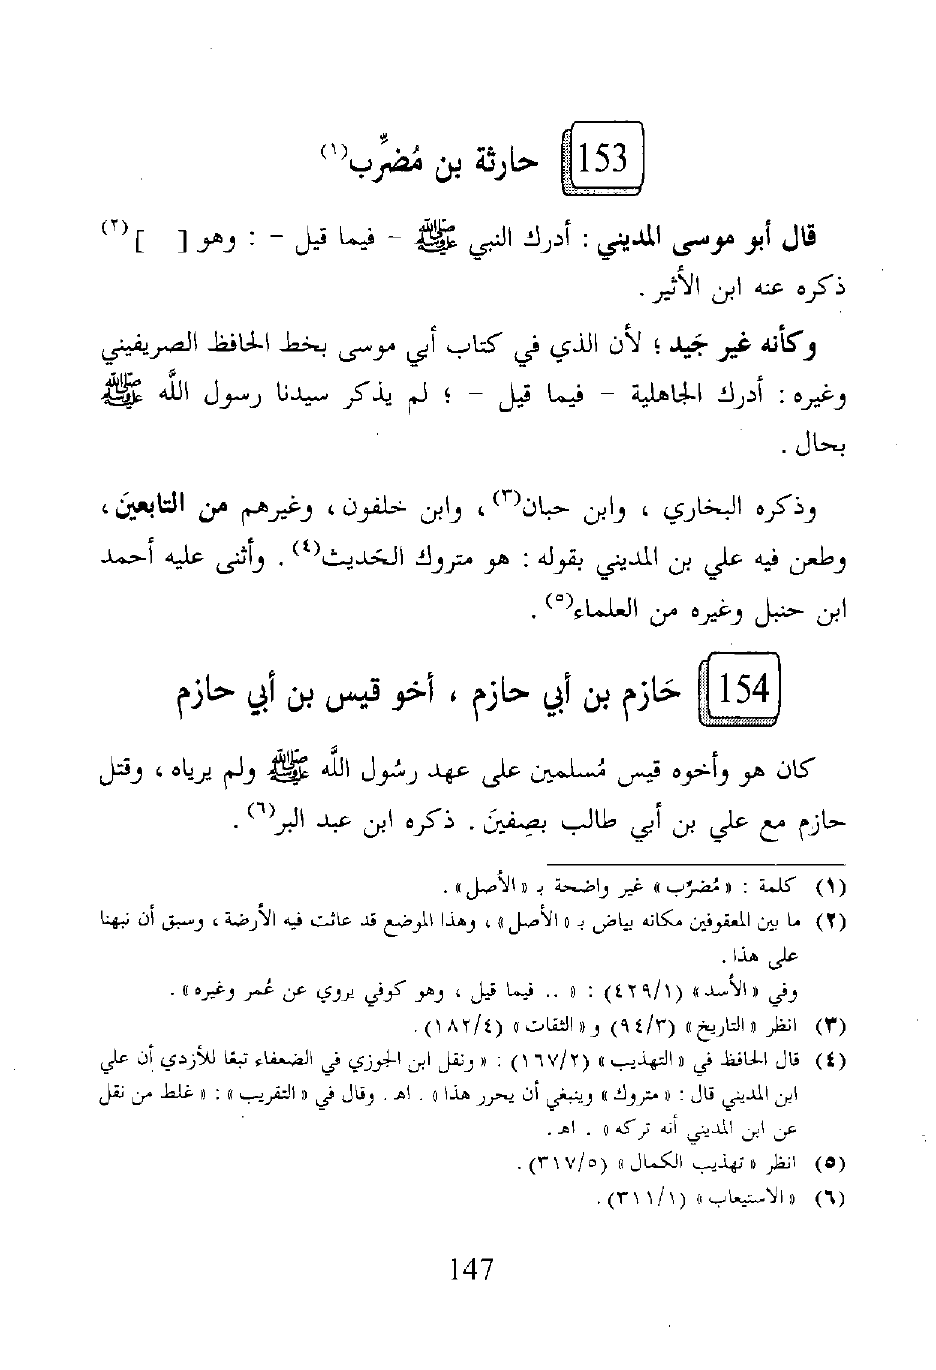 153 حارثة بن مُضرِّب(١)
قال أبو موسى المديني : أدرك النبي ﷺ - فيما قيل - : وهو [ ](٢)
ذكره عنه ابن الأثير .
وكأنه غير جَيد ؛ لأن الذي في كتاب أبي موسى بخط الحافظ الصريفيني
وغيره : أدرك الجاهلية - فيما قيل - ؛ لم يذكر سيدنا رسول اللَّه ﷺ
بحال .
وذكره البخاري ، وابن حبان(٣) ، وابن خلفون ، وغيرهم من التابعينَ ،
وطعن فيه علي بن المديني بقوله : هو متروك الحَديث(٤) . وأثنى عليه أحمد
ابن حنبل وغيره من العلماء(٥) .
154 حَازم بن أبي حازم ، أخو قيس بن أبي حازم
كان هو وأخوه قيس مُسلمين على عهد رسُول اللَّه ﷺ ولم يرياه ، وقتل
حازم مع علي بن أبي طالب بصِفينَ . ذكره ابن عبد البر(٦) .
(١) كلمة : « مُضرِّب » غير واضحة بـ « الأصل » .
(٢) ما بين المعقوفين مكانه بياض بـ « الأصل » ، وهذا الموضع قد عاثت فيه الأرضة ، وسبق أن نبهنا
على هذا .
وفي « الأسد » (٤٢٩/١) : « .. فيما قيل ، وهو كوفي يروي عن عُمر وغيره » .
(٣) انظر « التاريخ » (٩٤/٣) و « الثقات » (١٨٢/٤) .
(٤) قال الحافظ في « التهذيب » (١٦٧/٢) : « ونقل ابن الجوزي في الضعفاء تبعًا للأزدي أن علي
ابن المديني قال : « متروك » وينبغي أن يحرر هذا » . اهـ . وقال في « التقريب » : « غلط من نقل
عن ابن المديني أنه تركه » . اهـ .
(٥) انظر « تهذيب الكمال » (٣١٧/٥) .
(٦) « الاستيعاب » (٣١١/١) .
147